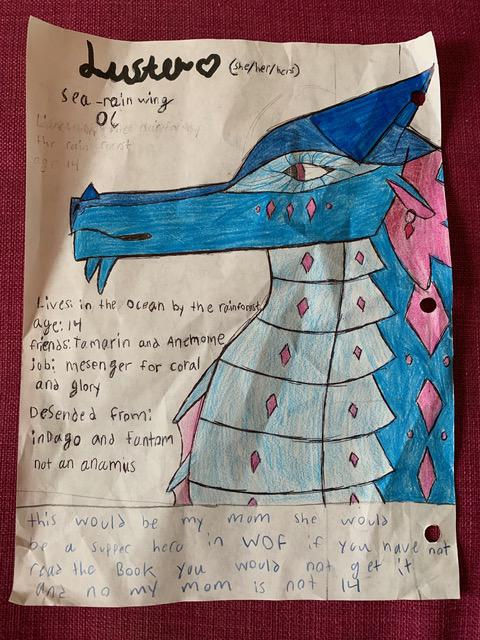 Luster♡ (she/her/hers)
sea-rainwing
OC
the rainforest
age 14
Lives: in the ocean by the rainforest
age: 14
friends: Tamarin and Anemome
job: mesenger for coral
and glory
Desended from:
inDago and Fantom
not an anamus
this would be my mom she would
be a supper hero in WOF if you have not
read the Book you would not get it
and no my mom is not 14